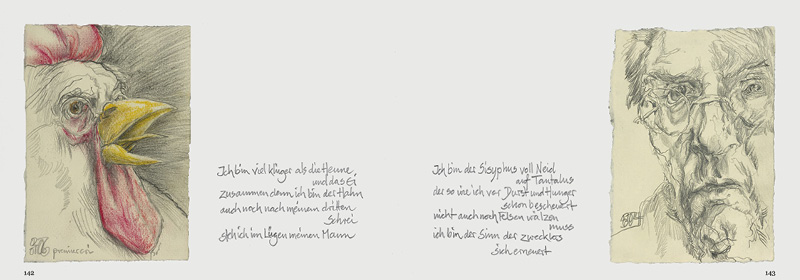 Ich bin viel klüger als die Henne,
und das Ei
zusammen denn ich bin der Hahn
auch noch nach meinem dritten
Schrei
steh ich im Lügen meinen Mann
142
Ich bin der Sisyphus voll Neid
auf Tantalus
der so wie ich vor Durst und Hunger
schon bescheuert
nicht auch noch Felsen wälzen
muss
ich bin der Sinn der zwecklos
sich erneuert
143